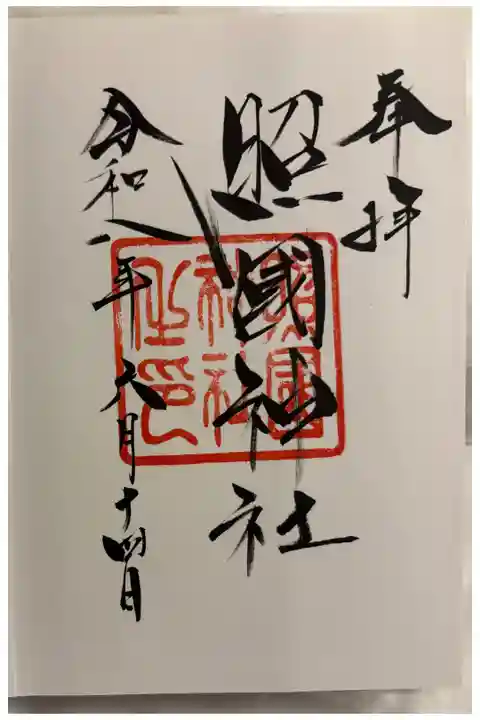 奉拝
照國神社
照國
神社
之印
令和八年六月十四日